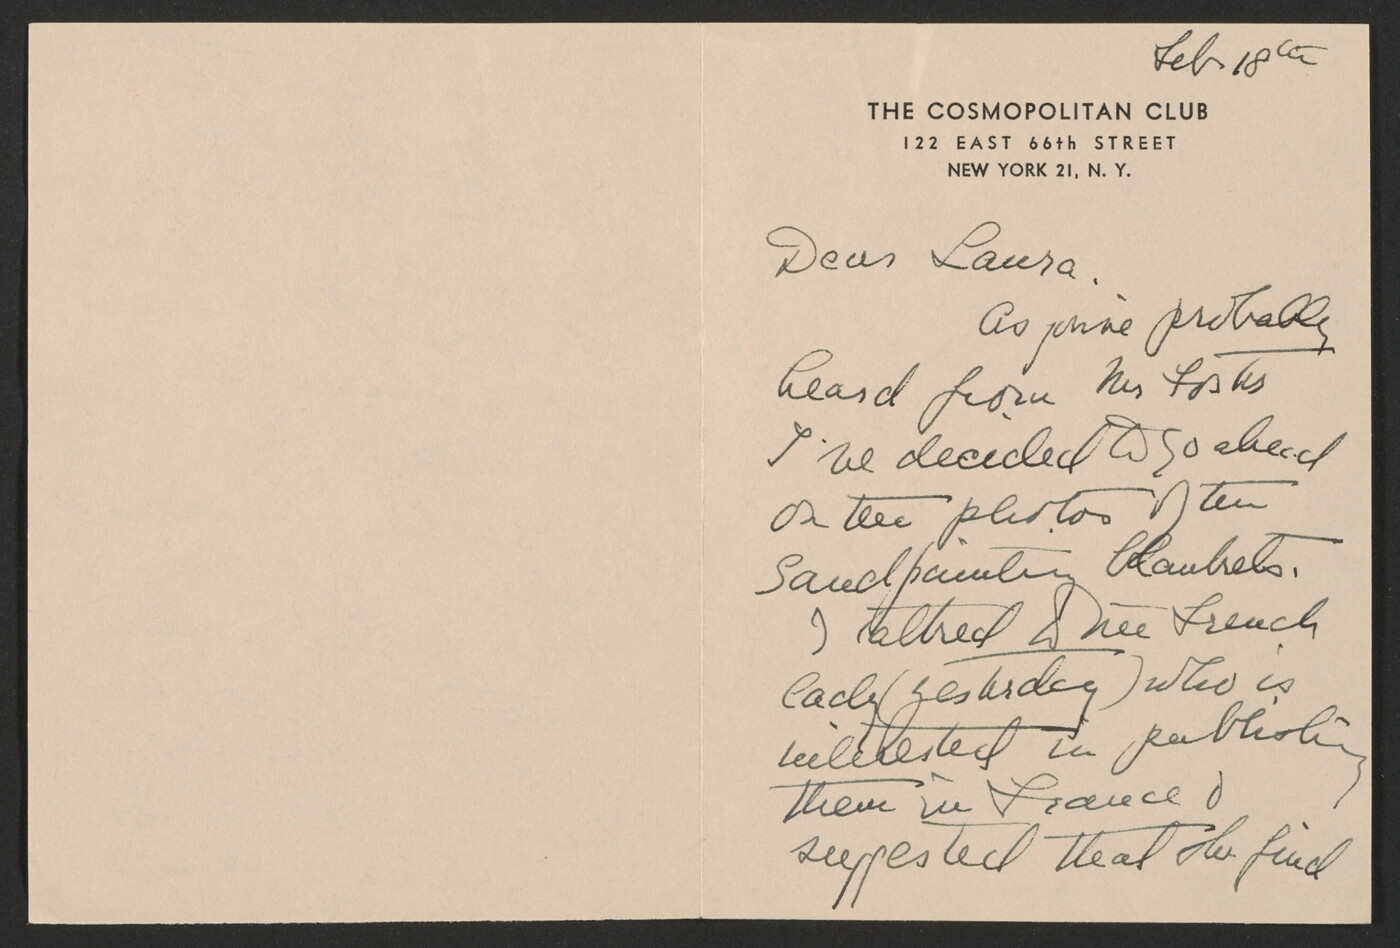 Feb 18th
THE COSMOPOLITAN CLUB
122 EAST 66th STREET
NEW YORK 21, N. Y.
Dear Laura.
As you've probably
heard from Mrs
I've decided to go ahead
on the photos of the
Sandpainting blankets.
I talked to the French
lady (yesterday) who is
interested in publishing
them in France &
suggested that she find